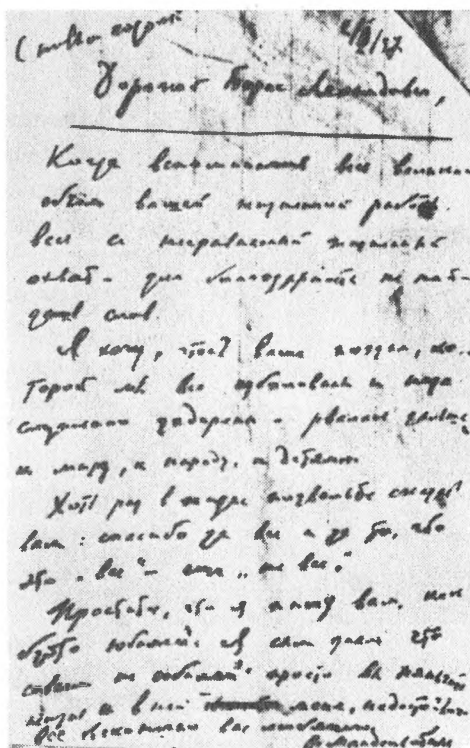 С новым годом
2/I/37
Дорогой Борис Леонидович,
Когда вспоминаешь весь великий
объем вашей жизненной работы,
весь ее несравненный жизненный
охват – для благодарности не най-
дешь слов.
Я хочу, чтоб ваша поэзия, ко-
торой мы все избалованы и неза-
служенно задарены – рвалась дальше,
к миру, к народу, к детям
Хоть раз в жизни позвольте сказать
вам: спасибо за все и за то, что
это „все" – еще „не все."
Простите, что я пишу вам, как
будто юбилей. Я сам знаю что
совсем не юбилей: просто вы нянчите
жизнь и в ней меня, недостойного
вас бесконечно вас любящего.
О. Мандельштам